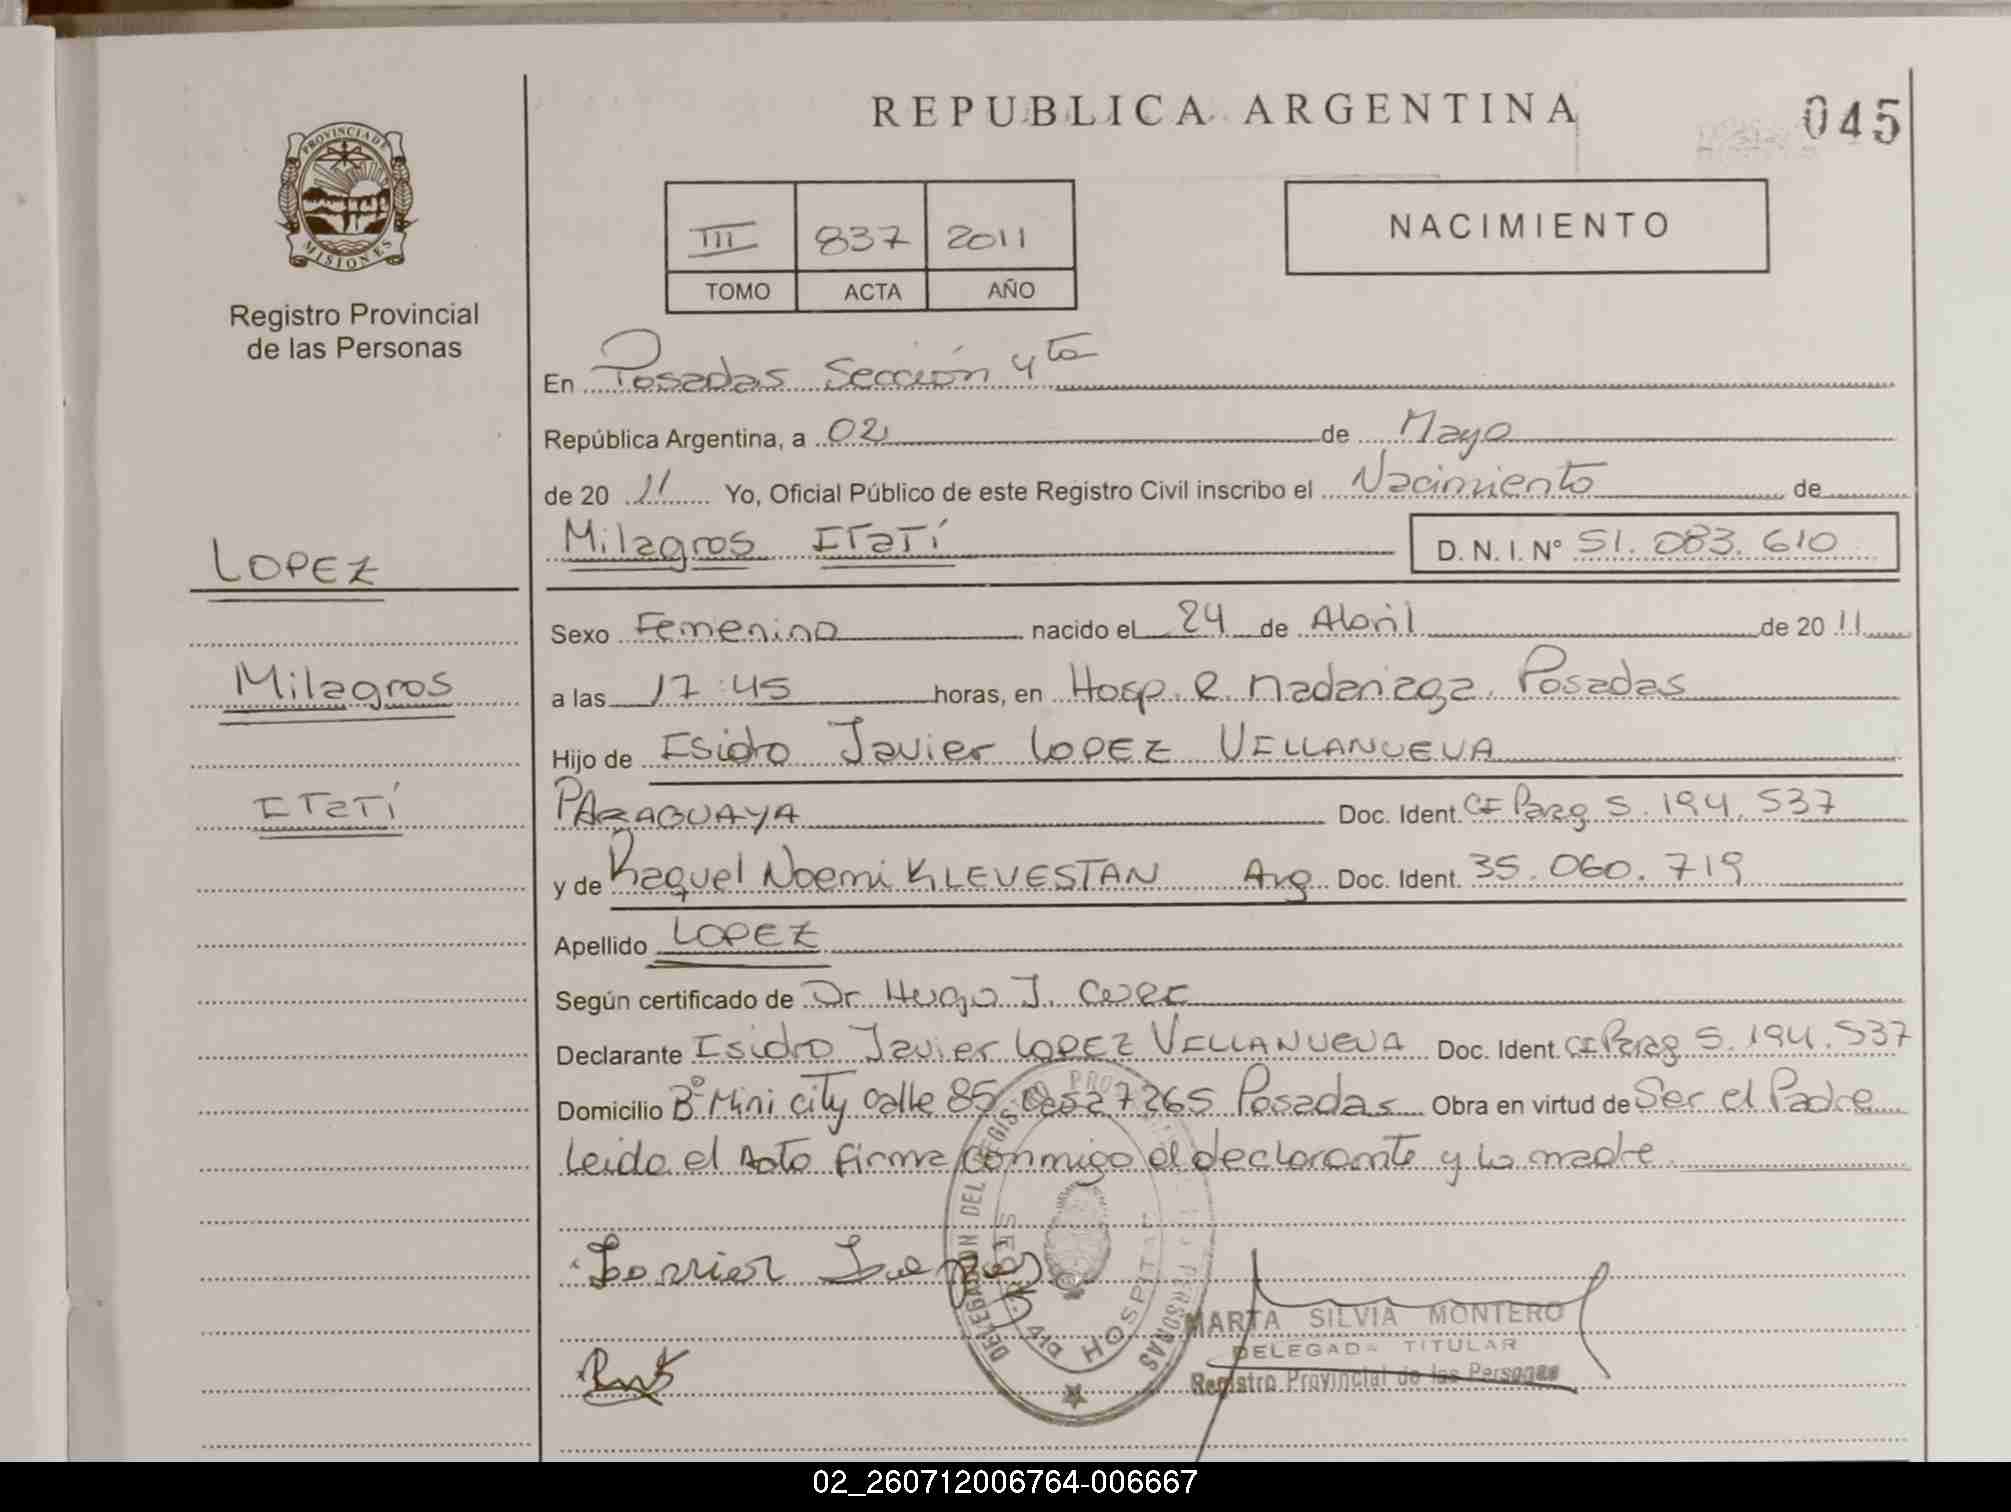 REPUBLICA ARGENTINA
045
PROVINCIA DE
MISIONES
Registro Provincial
de las Personas
III 837 2011
TOMO ACTA AÑO
NACIMIENTO
En Posadas Sección 4ta
República Argentina, a 02 de Mayo
de 20 11 Yo, Oficial Público de este Registro Civil inscribo el Nacimiento de
Milagros ITaTí D. N. I. Nº 51.083.610
LOPEZ
Milagros
ITaTí
Sexo Femenino nacido el 24 de Abril de 20 11
a las 17:45 horas, en Hosp. R. Madariaga. Posadas
Hijo de Isidro Javier LOPEZ VILLANUEVA
PARAGUAYA Doc. Ident. CI Parag 5.194.537
y de Raquel Noemi KLEVESTAN Arg. Doc. Ident. 35.060.719
Apellido LOPEZ
Según certificado de Dr Hugo J.
Declarante Isidro Javier LOPEZ VILLANUEVA Doc. Ident. CI Parag 5.194.537
Domicilio Bº Mini city calle 85 casa 7265 Posadas Obra en virtud de Ser el Padre
Leida el Acta firma conmigo el declarante y la madre
DELEGACION DEL REGISTRO PROVINCIAL DE LAS PERSONAS
SECC. 4ta HOSPITAL
MARTA SILVIA MONTERO
DELEGADA TITULAR
Registro Provincial de las Personas
02_260712006764-006667